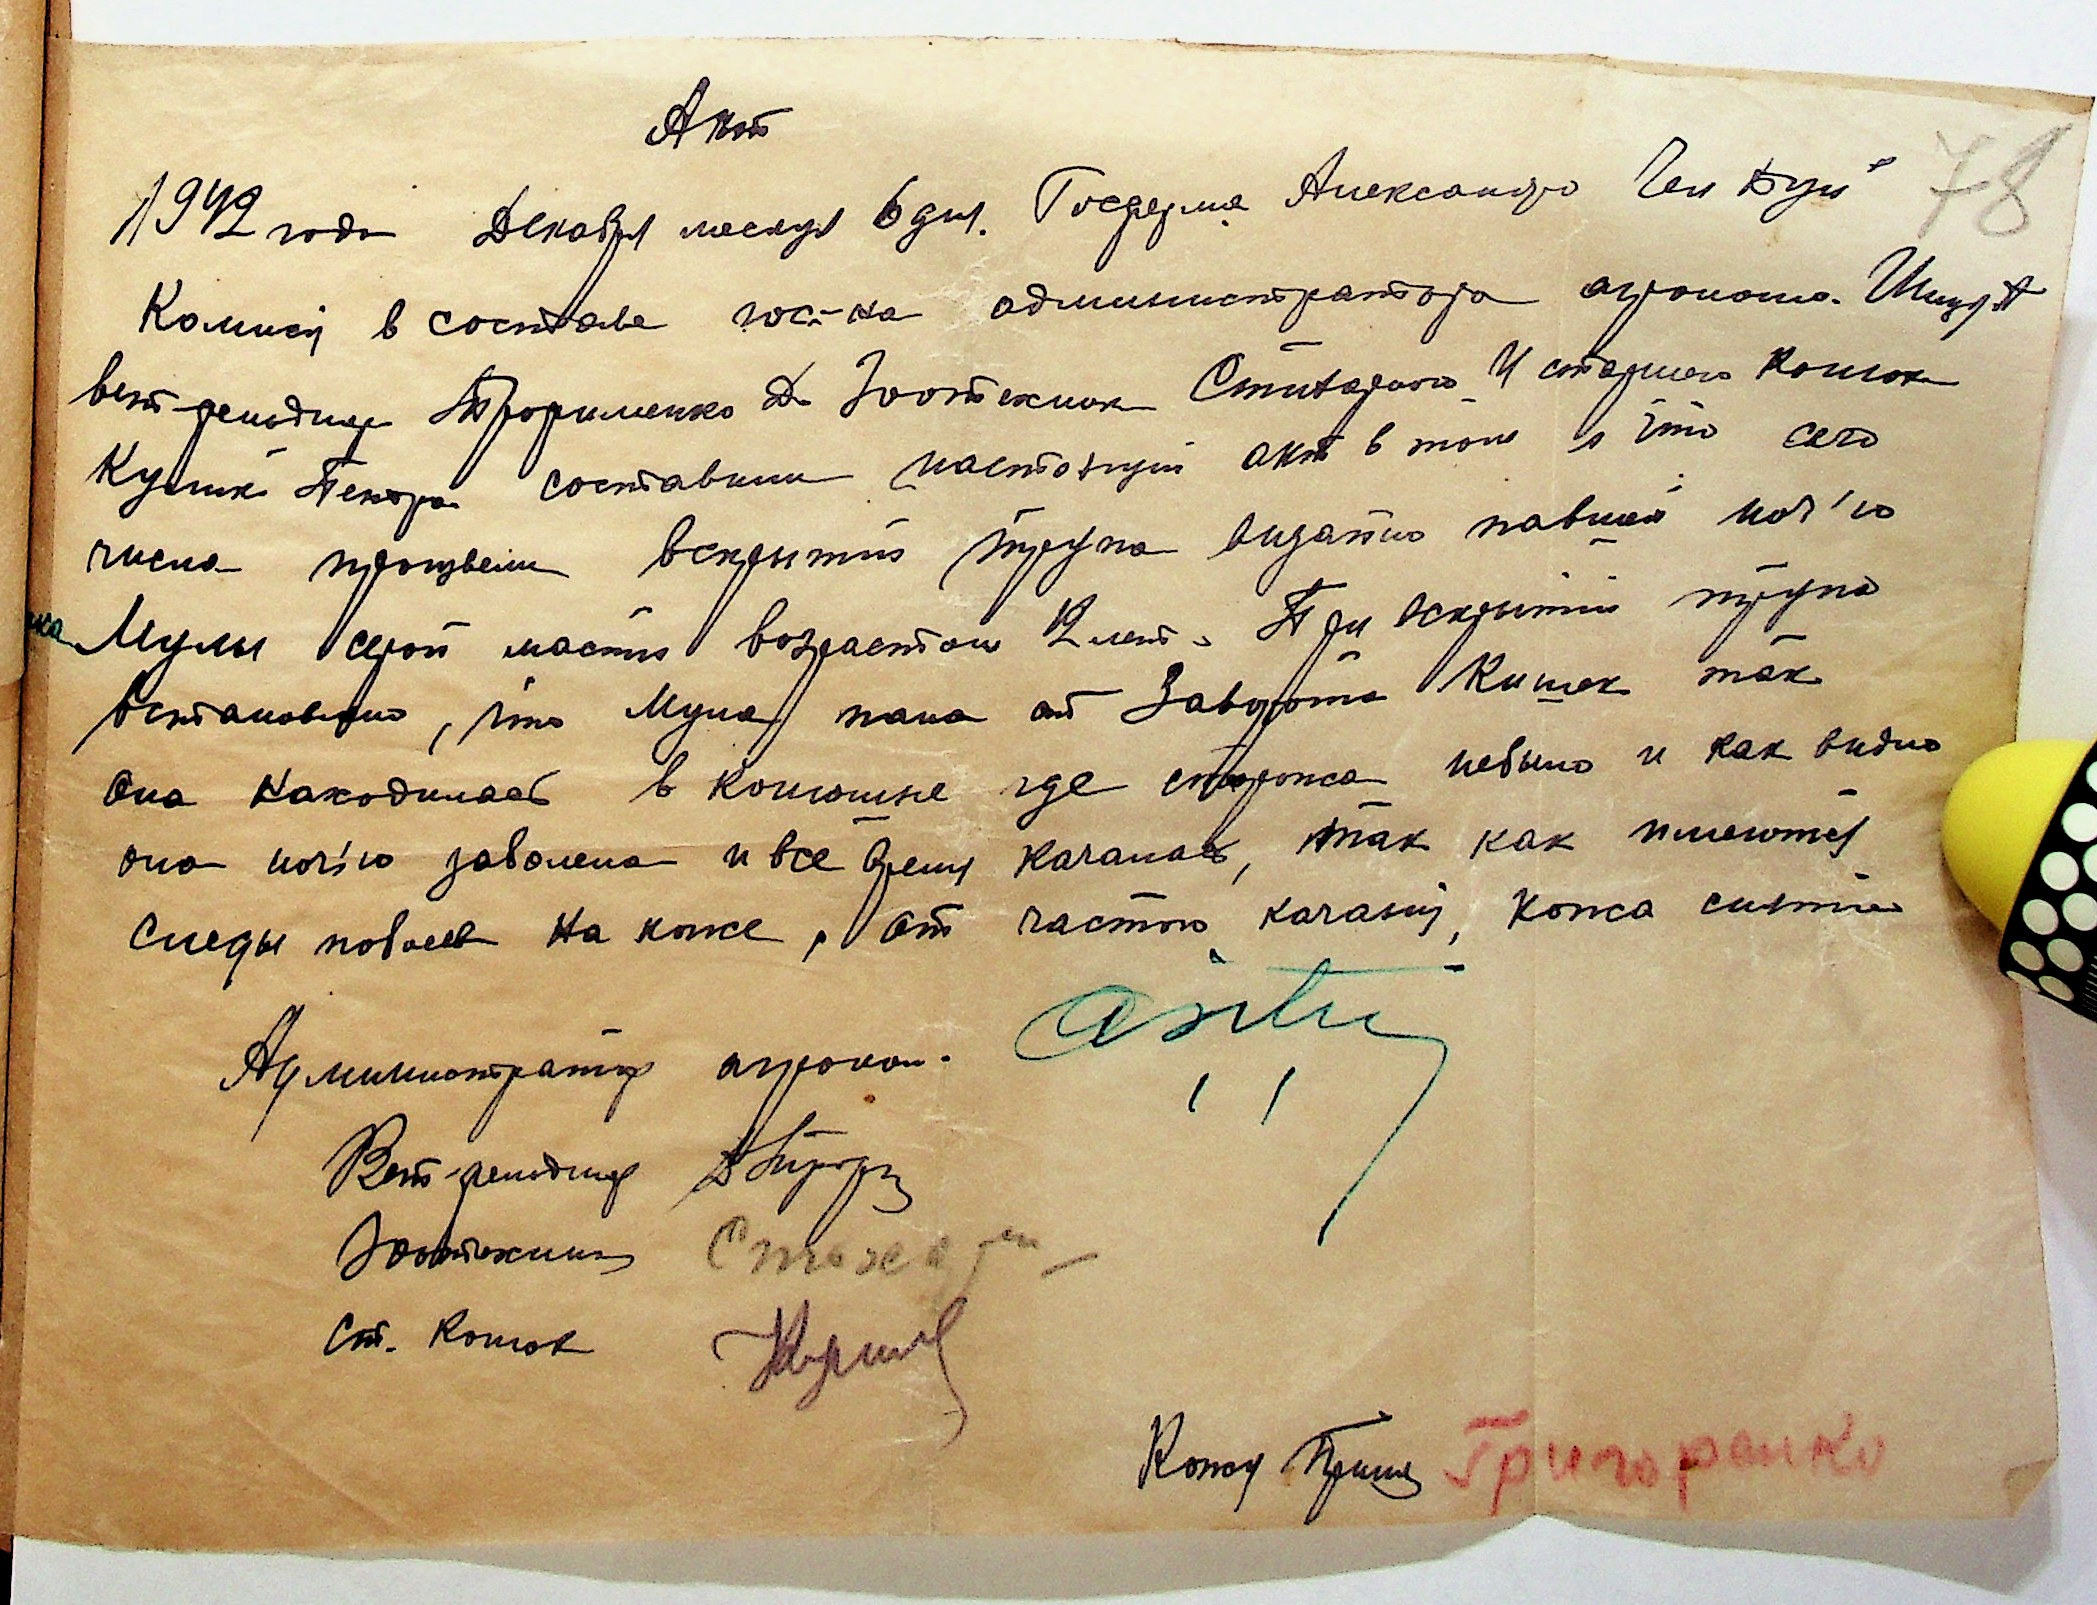 Акт
78
1942 года Декабря месяця 6 дня. Госферма Александро
Комисия в составе гос-ка администратора агронома.
вет-фельдшер Трофименко Д. Зоотехник и старшего Конюх
Кулик Петра составили настоящий акт в том что сего
числа произвели вскрытия трупа павшей ноч'ю
Мулы серой масти возрастом 12 лет. При вскрытии трупа
встановлено, что Мула пала от Заворота Кишек так
она находилась в конюшне где сторожа небыло и как видно
она ноч'ю заболела и все время качалась, так как имеются
следы побоев на коже, от частого качания, кожа снята
Администратор агроном.
Вет-фельдшер
Зоотехник
Ст. Конюх
Кожу Принял Григоренко